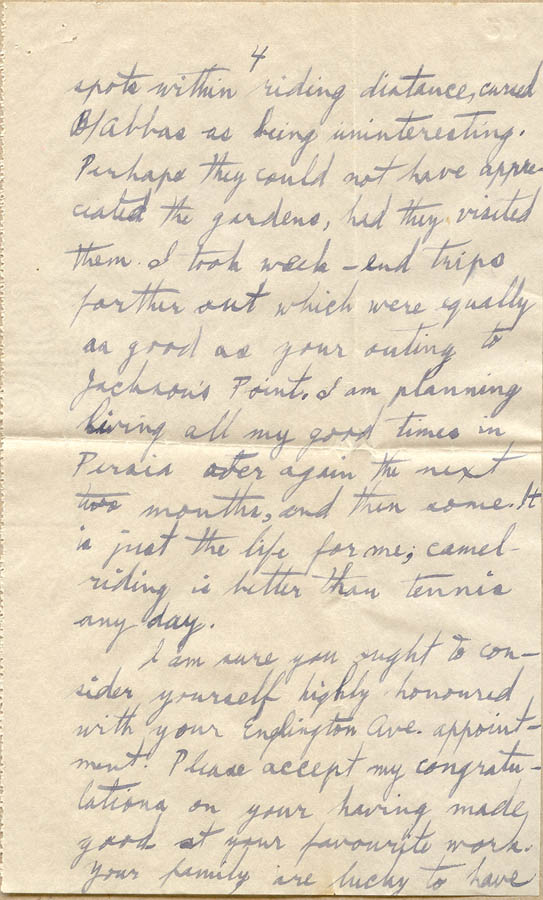 4
spots within riding distance, cursed
B/Abbas as being uninteresting.
Perhaps they could not have appre-
ciated the gardens, had they visited
them. I took week-end trips
farther out which were equally
as good as your outing to
Jackson's Point. I am planning
living all my good times in
Persia over again the next
two months, and then some. It
is just the life for me; camel-
riding is better than tennis
any day.
I am sure you ought to con-
sider yourself highly honoured
with your Englington Ave. appoint-
ment! Please accept my congratu-
lations on your having made
good at your favourite work.
Your family are lucky to have